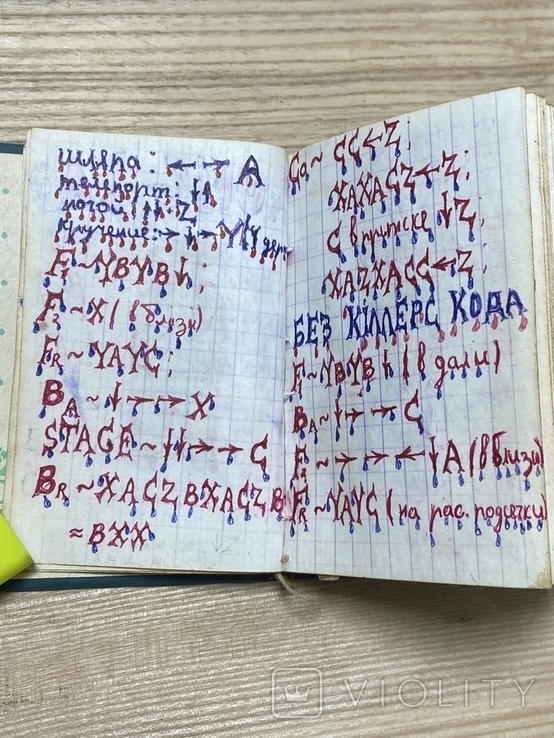 шляпа: ← → A
телепорт: ↓↑
ногой ↓↓: Z
кручение: → ↓ → Y
F₁ ~ YBYB↓;
F₂ ~ X (вблизи)
FR ~ YAYC;
BA ~ ↓ → → X
STAGE ~ ↓↓ → → C
BR ~ XACZBXACZB
≈ BXX
Ca ~ CC←Z;
XAXACZ←Z;
С в притске ↓Z;
XAZXACC←Z;
БЕЗ КИЛЛЕРС КОДА
F₁ ~ YBYB↓ (в дали)
BA ~ ↓ → → C
F₂ ~ → → ← ↓A (вблизи)
FR ~ YAYC (на рас. подсечки)
VIOLITY